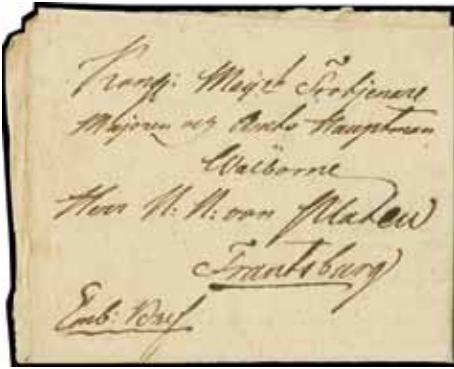 Kongl: Maij:ts Trotjenare
Majoren och Ambts Hauptman
Walborne
Herr N: N: von Platen
Frantsburg
Emb: Bref